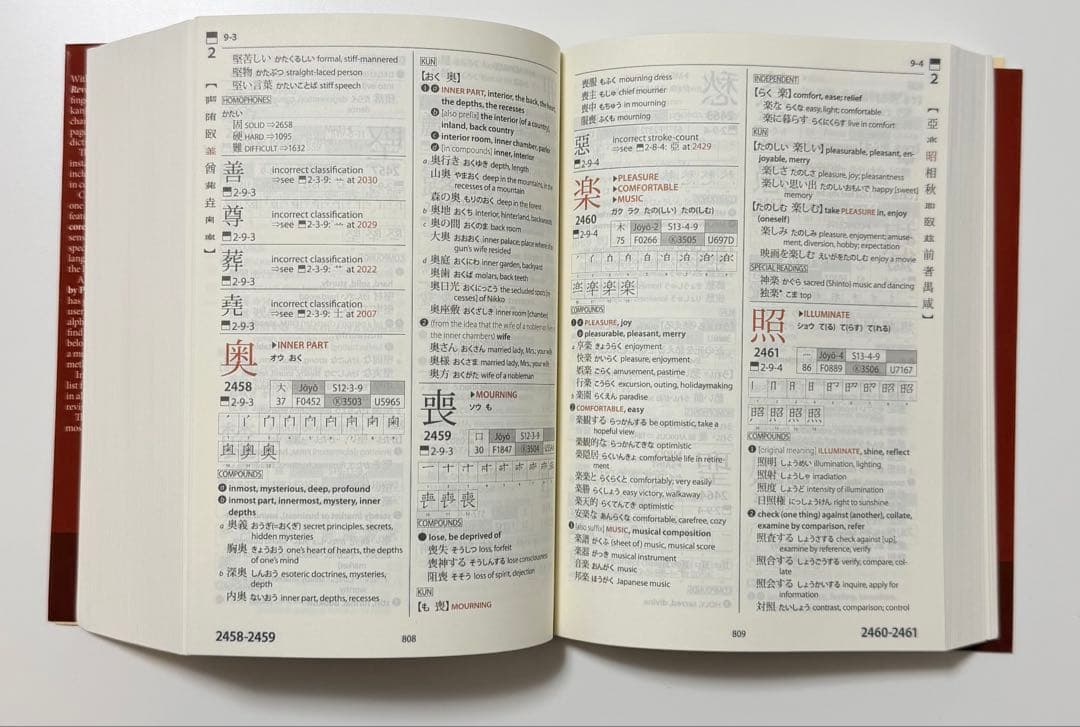 9-3
2
堅苦しい かたくるしい formal, stiff-mannered
堅物 かたぶつ straight-laced person
堅い言葉 かたいことば stiff speech
HOMOPHONES
かたい
固 SOLID ⇒2658
硬 HARD ⇒1095
難 DIFFICULT ⇒1632
善
incorrect classification
⇒see 2-3-9: at 2030
2-9-3
尊
incorrect classification
⇒see 2-3-9: at 2029
2-9-3
葬
incorrect classification
⇒see 2-3-9: at 2022
2-9-3
堯
incorrect classification
⇒see 2-3-9: 土 at 2007
2-9-3
奥
▶INNER PART
オウ おく
2458
2-9-3
大 Jōyō S12-3-9
37 F0452 Ⓚ3503 U5965
COMPOUNDS
ⓐ inmost, mysterious, deep, profound
ⓑ inmost part, innermost, mystery, inner
depths
a 奥義 おうぎ(=おくぎ) secret principles, secrets,
hidden mysteries
胸奥 きょうおう one's heart of hearts, the depths
of one's mind
b 深奥 しんおう esoteric doctrines, mysteries,
depth
内奥 ないおう inner part, depths, recesses
KUN
【おく 奥】
❶ⓐ INNER PART, interior, the back, the heart,
the depths, the recesses
ⓑ [also prefix] the interior (of a country),
inland, back country
ⓒ interior room, inner chamber, parlor
ⓓ [in compounds] inner, interior
a 奥行き おくゆき depth, length
山奥 やまおく deep in the mountains, in the
recesses of a mountain
森の奥 もりのおく deep in the forest
b 奥地 おくち interior, hinterland, backwoods
c 奥の間 おくのま back room
大奥 おおおく inner palace; place where the sho-
gun's wife resided
d 奥庭 おくにわ inner garden, backyard
奥歯 おくば molars, back teeth
奥日光 おくにっこう the secluded spots [re-
cesses] of Nikko
奥座敷 おくざしき inner room [chamber]
❷ (from the idea that the wife of a noble lived in
the inner chambers) wife
奥さん おくさん married lady, Mrs.; your wife
奥様 おくさま married lady, Mrs.; your wife
奥方 おくがた wife of a nobleman
喪
▶MOURNING
ソウ も
2459
2-9-3
口 Jōyō S12-3-9
30 F1847 Ⓚ3504
COMPOUNDS
● lose, be deprived of
喪失 そうしつ loss, forfeit
喪神する そうしんする lose consciousness
阻喪 そそう loss of spirit, dejection
KUN
【も 喪】 MOURNING
2458-2459
808
喪服 もふく mourning dress
喪主 もしゅ chief mourner
喪中 もちゅう in mourning
服喪 ふくも mourning
惡
incorrect stroke-count
⇒see 2-8-4: 亞 at 2429
2-9-4
楽
▶PLEASURE
▶COMFORTABLE
▶MUSIC
ガク ラク たの(しい) たの(しむ)
2460
2-9-4
木 Jōyō-2 S13-4-9
75 F0266 Ⓚ3505 U697D
COMPOUNDS
❶ⓐ PLEASURE, joy
ⓑ pleasurable, pleasant, merry
a 享楽 きょうらく enjoyment
快楽 かいらく pleasure, enjoyment
娯楽 ごらく amusement, pastime
行楽 こうらく excursion, outing, holidaymaking
b 楽園 らくえん paradise
❷ COMFORTABLE, easy
楽観する らっかんする be optimistic, take a
hopeful view
楽観的な らっかんてきな optimistic
楽隠居 らくいんきょ comfortable life in retire-
ment
楽楽と らくらくと comfortably; very easily
楽勝 らくしょう easy victory, walkaway
楽天的 らくてんてき optimistic
安楽な あんらくな comfortable, carefree, cozy
❸ [also suffix] MUSIC, musical composition
楽譜 がくふ (sheet of) music, musical score
楽器 がっき musical instrument
音楽 おんがく music
邦楽 ほうがく Japanese music
9-4
2
INDEPENDENT
【らく 楽】 comfort, ease; relief
楽な らくな easy, light; comfortable
楽に暮らす らくにくらす live in comfort
KUN
【たのしい 楽しい】 pleasurable, pleasant, en-
joyable, merry
楽しさ たのしさ pleasure, joy; pleasantness
楽しい思い出 たのしいおもいで happy [sweet]
memory
【たのしむ 楽しむ】 take PLEASURE in, enjoy
(oneself)
楽しみ たのしみ pleasure, enjoyment; amuse-
ment, diversion, hobby; expectation
映画を楽しむ えいがをたのしむ enjoy a movie
SPECIAL READINGS
神楽 かぐら sacred (Shinto) music and dancing
独楽* こま top
照
▶ILLUMINATE
ショウ て(る) て(らす) て(れる)
2461
2-9-4
Jōyō-4 S13-4-9
86 F0889 Ⓚ3506 U7167
COMPOUNDS
❶ [original meaning] ILLUMINATE, shine, reflect
照明 しょうめい illumination, lighting
照射 しょうしゃ irradiation
照度 しょうど intensity of illumination
日照権 にっしょうけん right to sunshine
❷ check (one thing) against (another), collate,
examine by comparison, refer
照査する しょうさする check against [up],
examine by reference, verify
照合する しょうごうする verify, compare, col-
late
照会する しょうかいする inquire, apply for
information
対照 たいしょう contrast, comparison; control
809
2460-2461